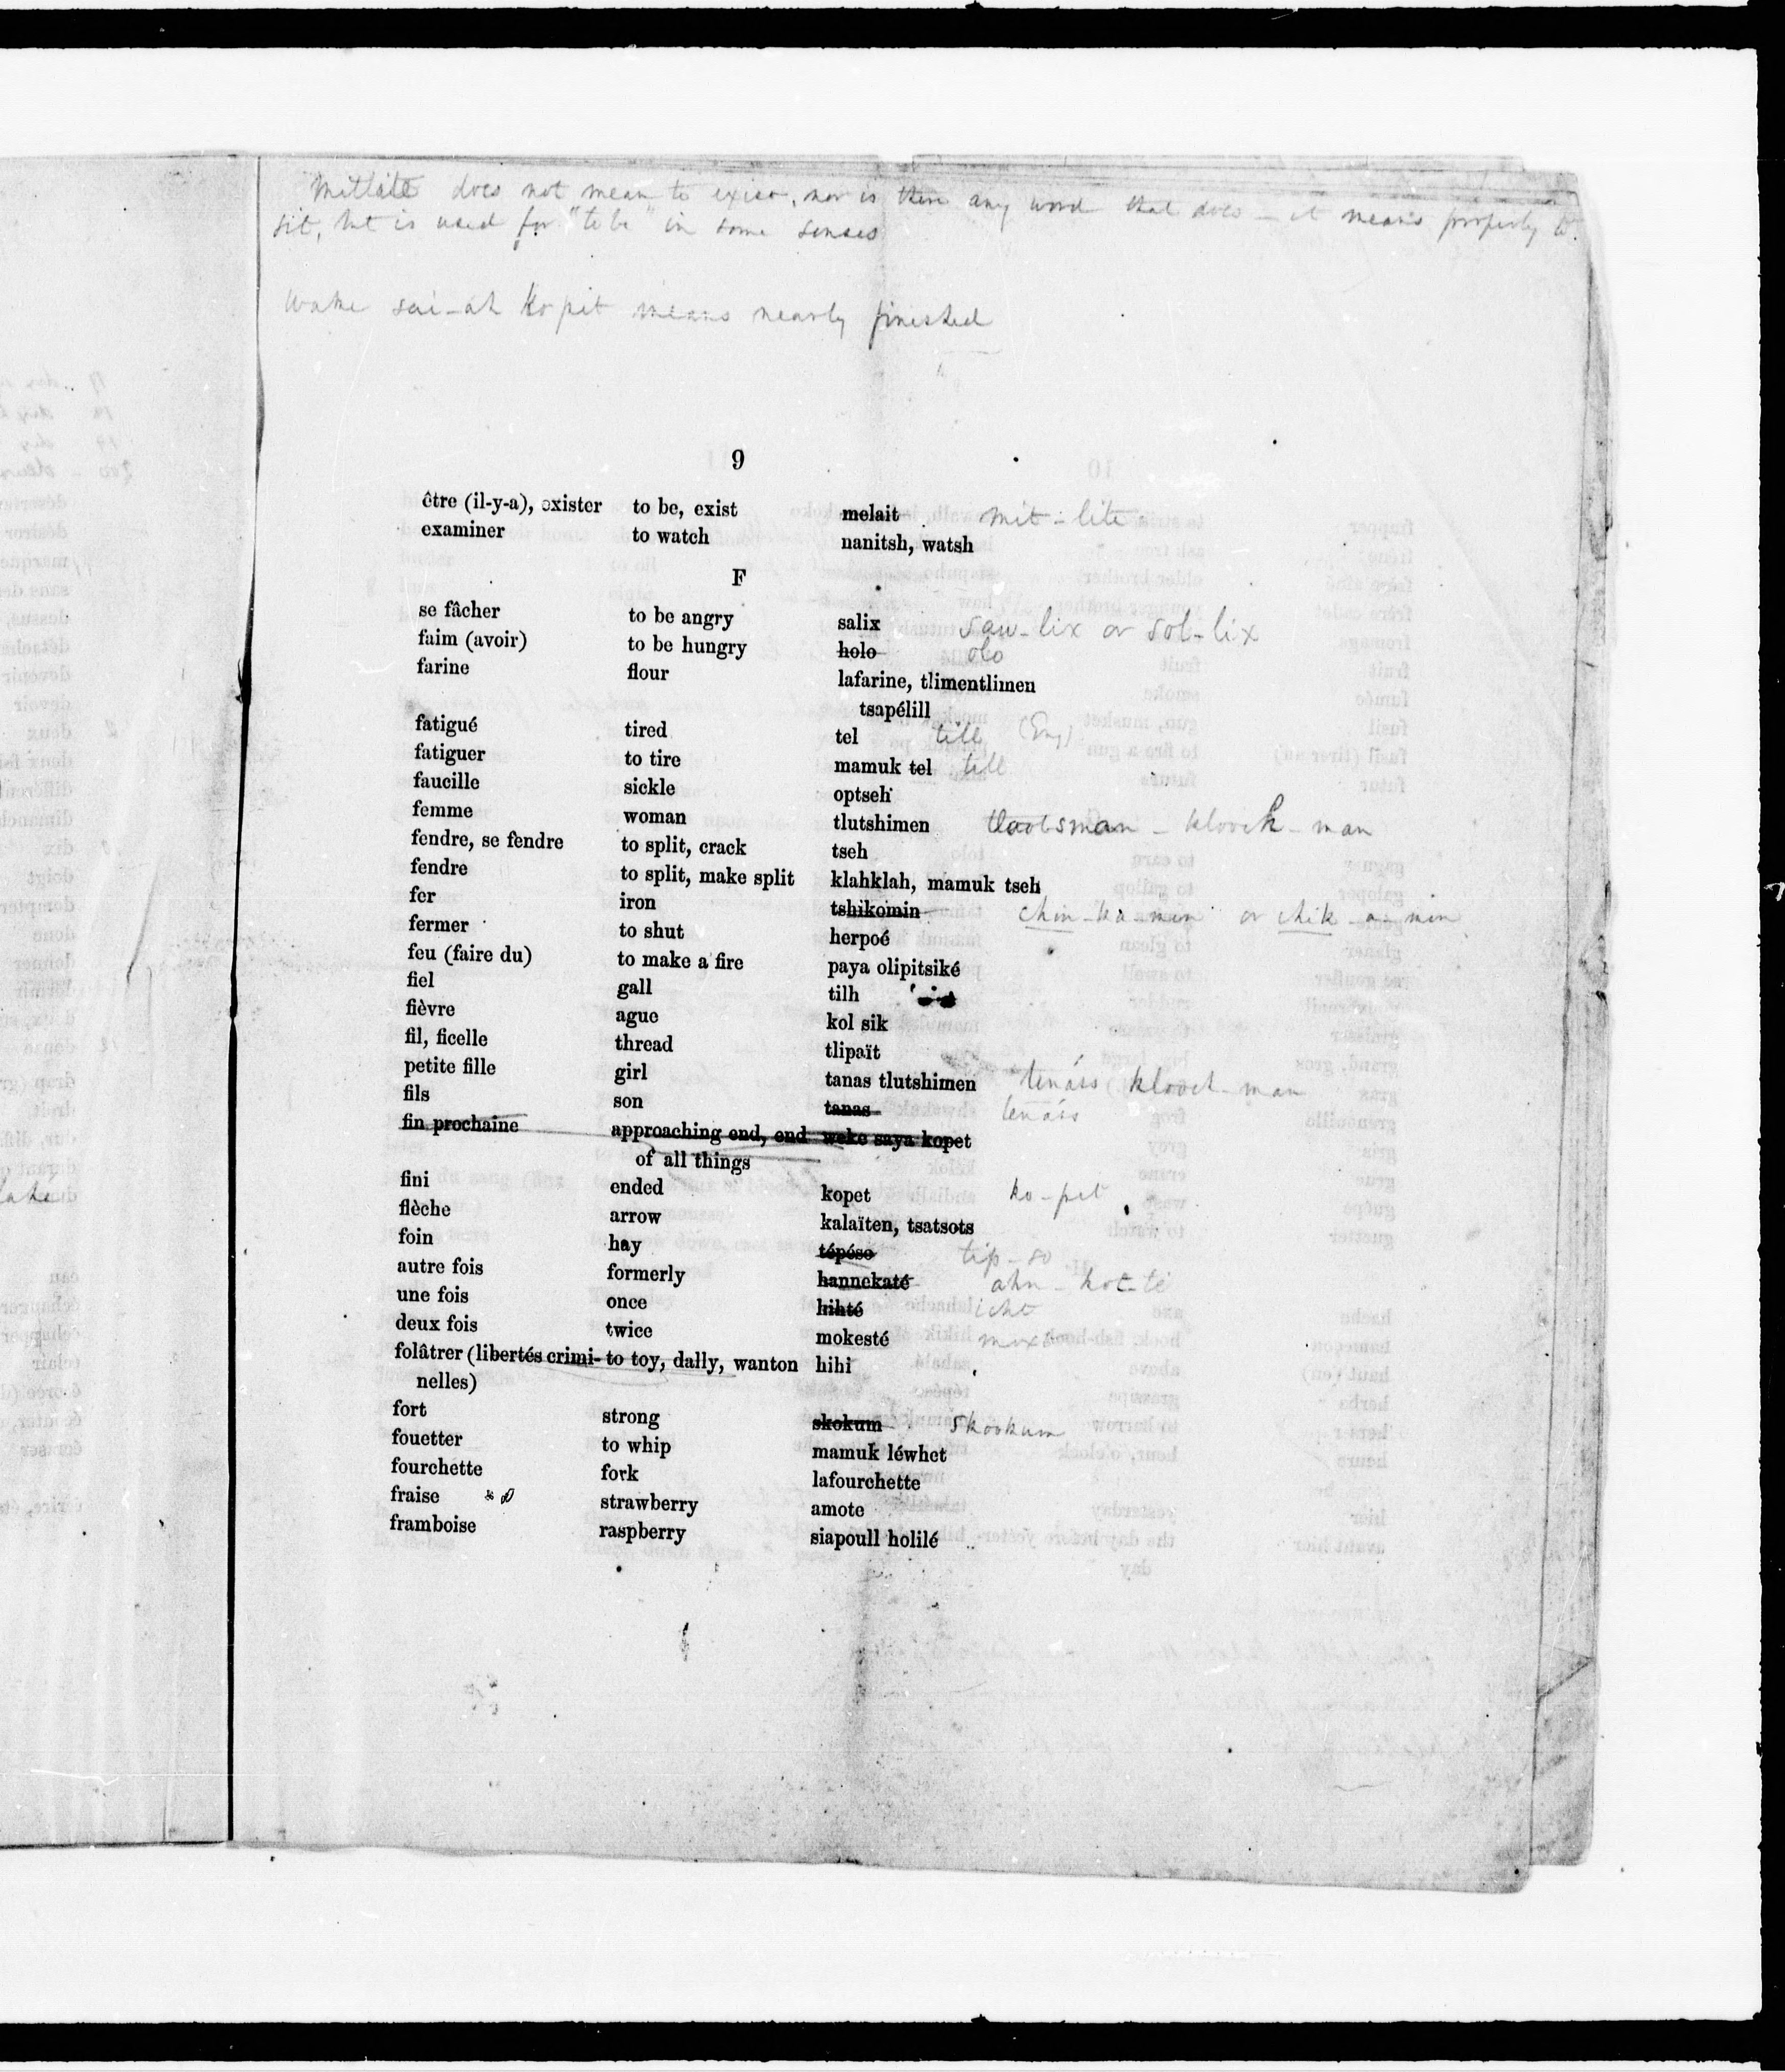 Mitlite does not mean to exist, nor is there any word that does — it means properly to
sit, but is used for "to be" in some senses
Wake sai-ah Ko pit means nearly finished
9
être (il-y-a), exister to be, exist melait mit-lite
examiner to watch nanitsh, watsh
F
se fâcher to be angry salix saw-lix or sol-lix
faim (avoir) to be hungry holo olo
farine flour lafarine, tlimentlimen
tsapélill
fatigué tired tel till (Eng)
fatiguer to tire mamuk tel till
faucille sickle optseh
femme woman tlutshimen klooch-man
fendre, se fendre to split, crack tseh
fendre to split, make split klahklah, mamuk tseh
fer iron tshikomin chin-ka-min or chik-a-min
fermer to shut herpoé
feu (faire du) to make a fire paya olipitsiké
fiel gall tilh
fièvre ague kol sik
fil, ficelle thread tlipaït
petite fille girl tanas tlutshimen tenáss klooch-man
fils son tanas tenáss
fin prochaine approaching end, end weke saya kopet
of all things
fini ended kopet ko-pet
flèche arrow kalaïten, tsatsots
foin hay tépéso tip-so
autre fois formerly hannekaté ahn-kot-te
une fois once hihté icht
deux fois twice mokesté
folâtrer (libertés crimi- to toy, dally, wanton hihi
nelles)
fort strong skokum skookum
fouetter to whip mamuk léwhet
fourchette fork lafourchette
fraise strawberry amote
framboise raspberry siapoull holilé